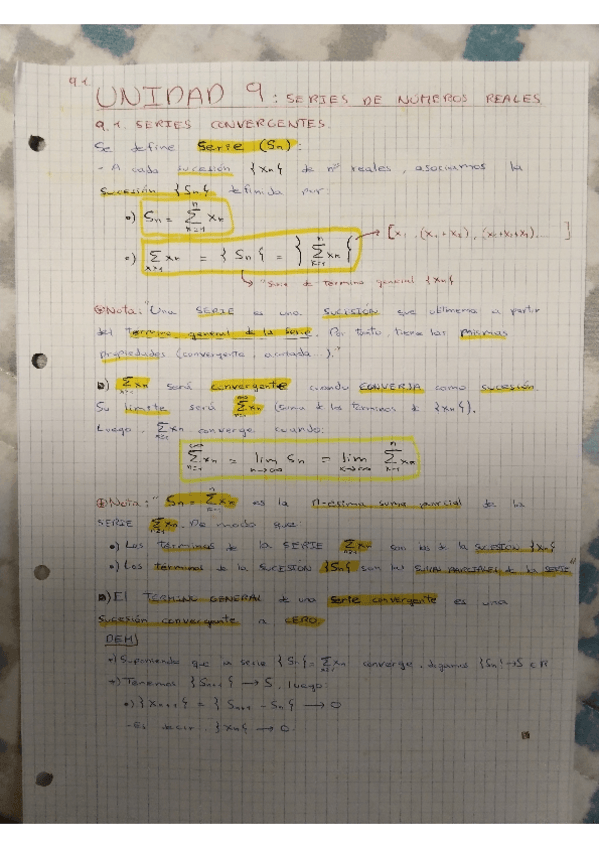 9.1
UNIDAD 9: SERIES DE NÚMEROS REALES
9.1. SERIES CONVERGENTES.
Se define Serie (Sn):
- A cada sucesión {xn} de nº reales, asociamos la
sucesión {Sn} definida por:
•) Sn = ∑ xn
•) ∑ xn = {Sn} = {∑ xn} → [x1, (x1+x2), (x1+x2+x3), ... ]
→ "Serie de término general {xn}
Nota: "Una SERIE es una SUCESIÓN que obtenemos a partir
del término general de la serie. Por tanto, tiene las mismas
propiedades (convergente, acotada...)."
∑ xn será convergente cuando CONVERJA como sucesión.
Su límite será ∑ xn (suma de los términos de {xn}).
Luego, ∑ xn converge cuando:
∑ xn = lim Sn = lim ∑ xn
Nota: "Sn = ∑ xn es la n-ésima suma parcial de la
SERIE ∑ xn. De modo que:
•) Los términos de la SERIE ∑ xn son los de la SUCESION {xn}
•) Los términos de la SUCESION {Sn} son las SUMAS PARCIALES de la SERIE"
) El TERMINO GENERAL de una serie convergente es una
sucesión convergente a CERO.
DEM)
•) Suponiendo que la serie {Sn} = ∑ xn converge, digamos {Sn} → S ∈ R
→) Tenemos {Sn+1} → S, luego:
•) {xn+1} = {Sn+1 - Sn} → 0
- Es decir, {xn} → 0.